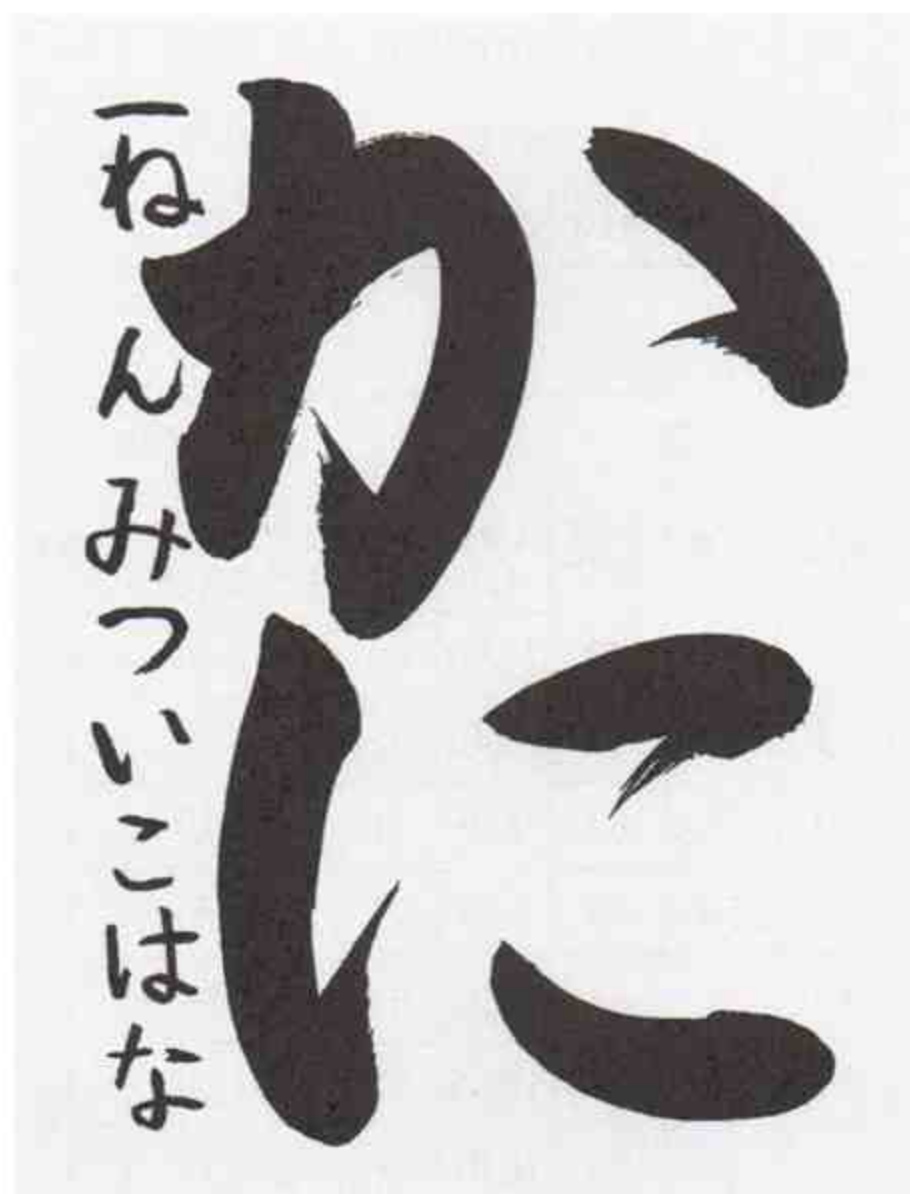 かに
一ねんみついこはな